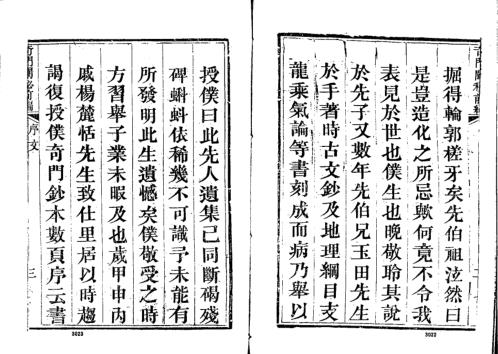 掘得輪郭槎牙矣先伯祖泫然曰
是豈造化之所忌歟何竟不令我
表見於世也僕生也晚敬聆其説
於先子又數年先伯兄玉田先生
於手著時古文鈔及地理綱目支
龍乘氣論等書刻成而病乃舉以
3022
授僕曰此先人遺集已同斷碣殘
碑蝌蚪依稀幾不可識予未能有
所發明此生遺憾矣僕敬受之時
方習舉子業未暇及也歲甲申丙
戚楊麓恬先生致仕里居以時趨
謁復授僕奇門鈔本數頁序云書
序文
三
3023